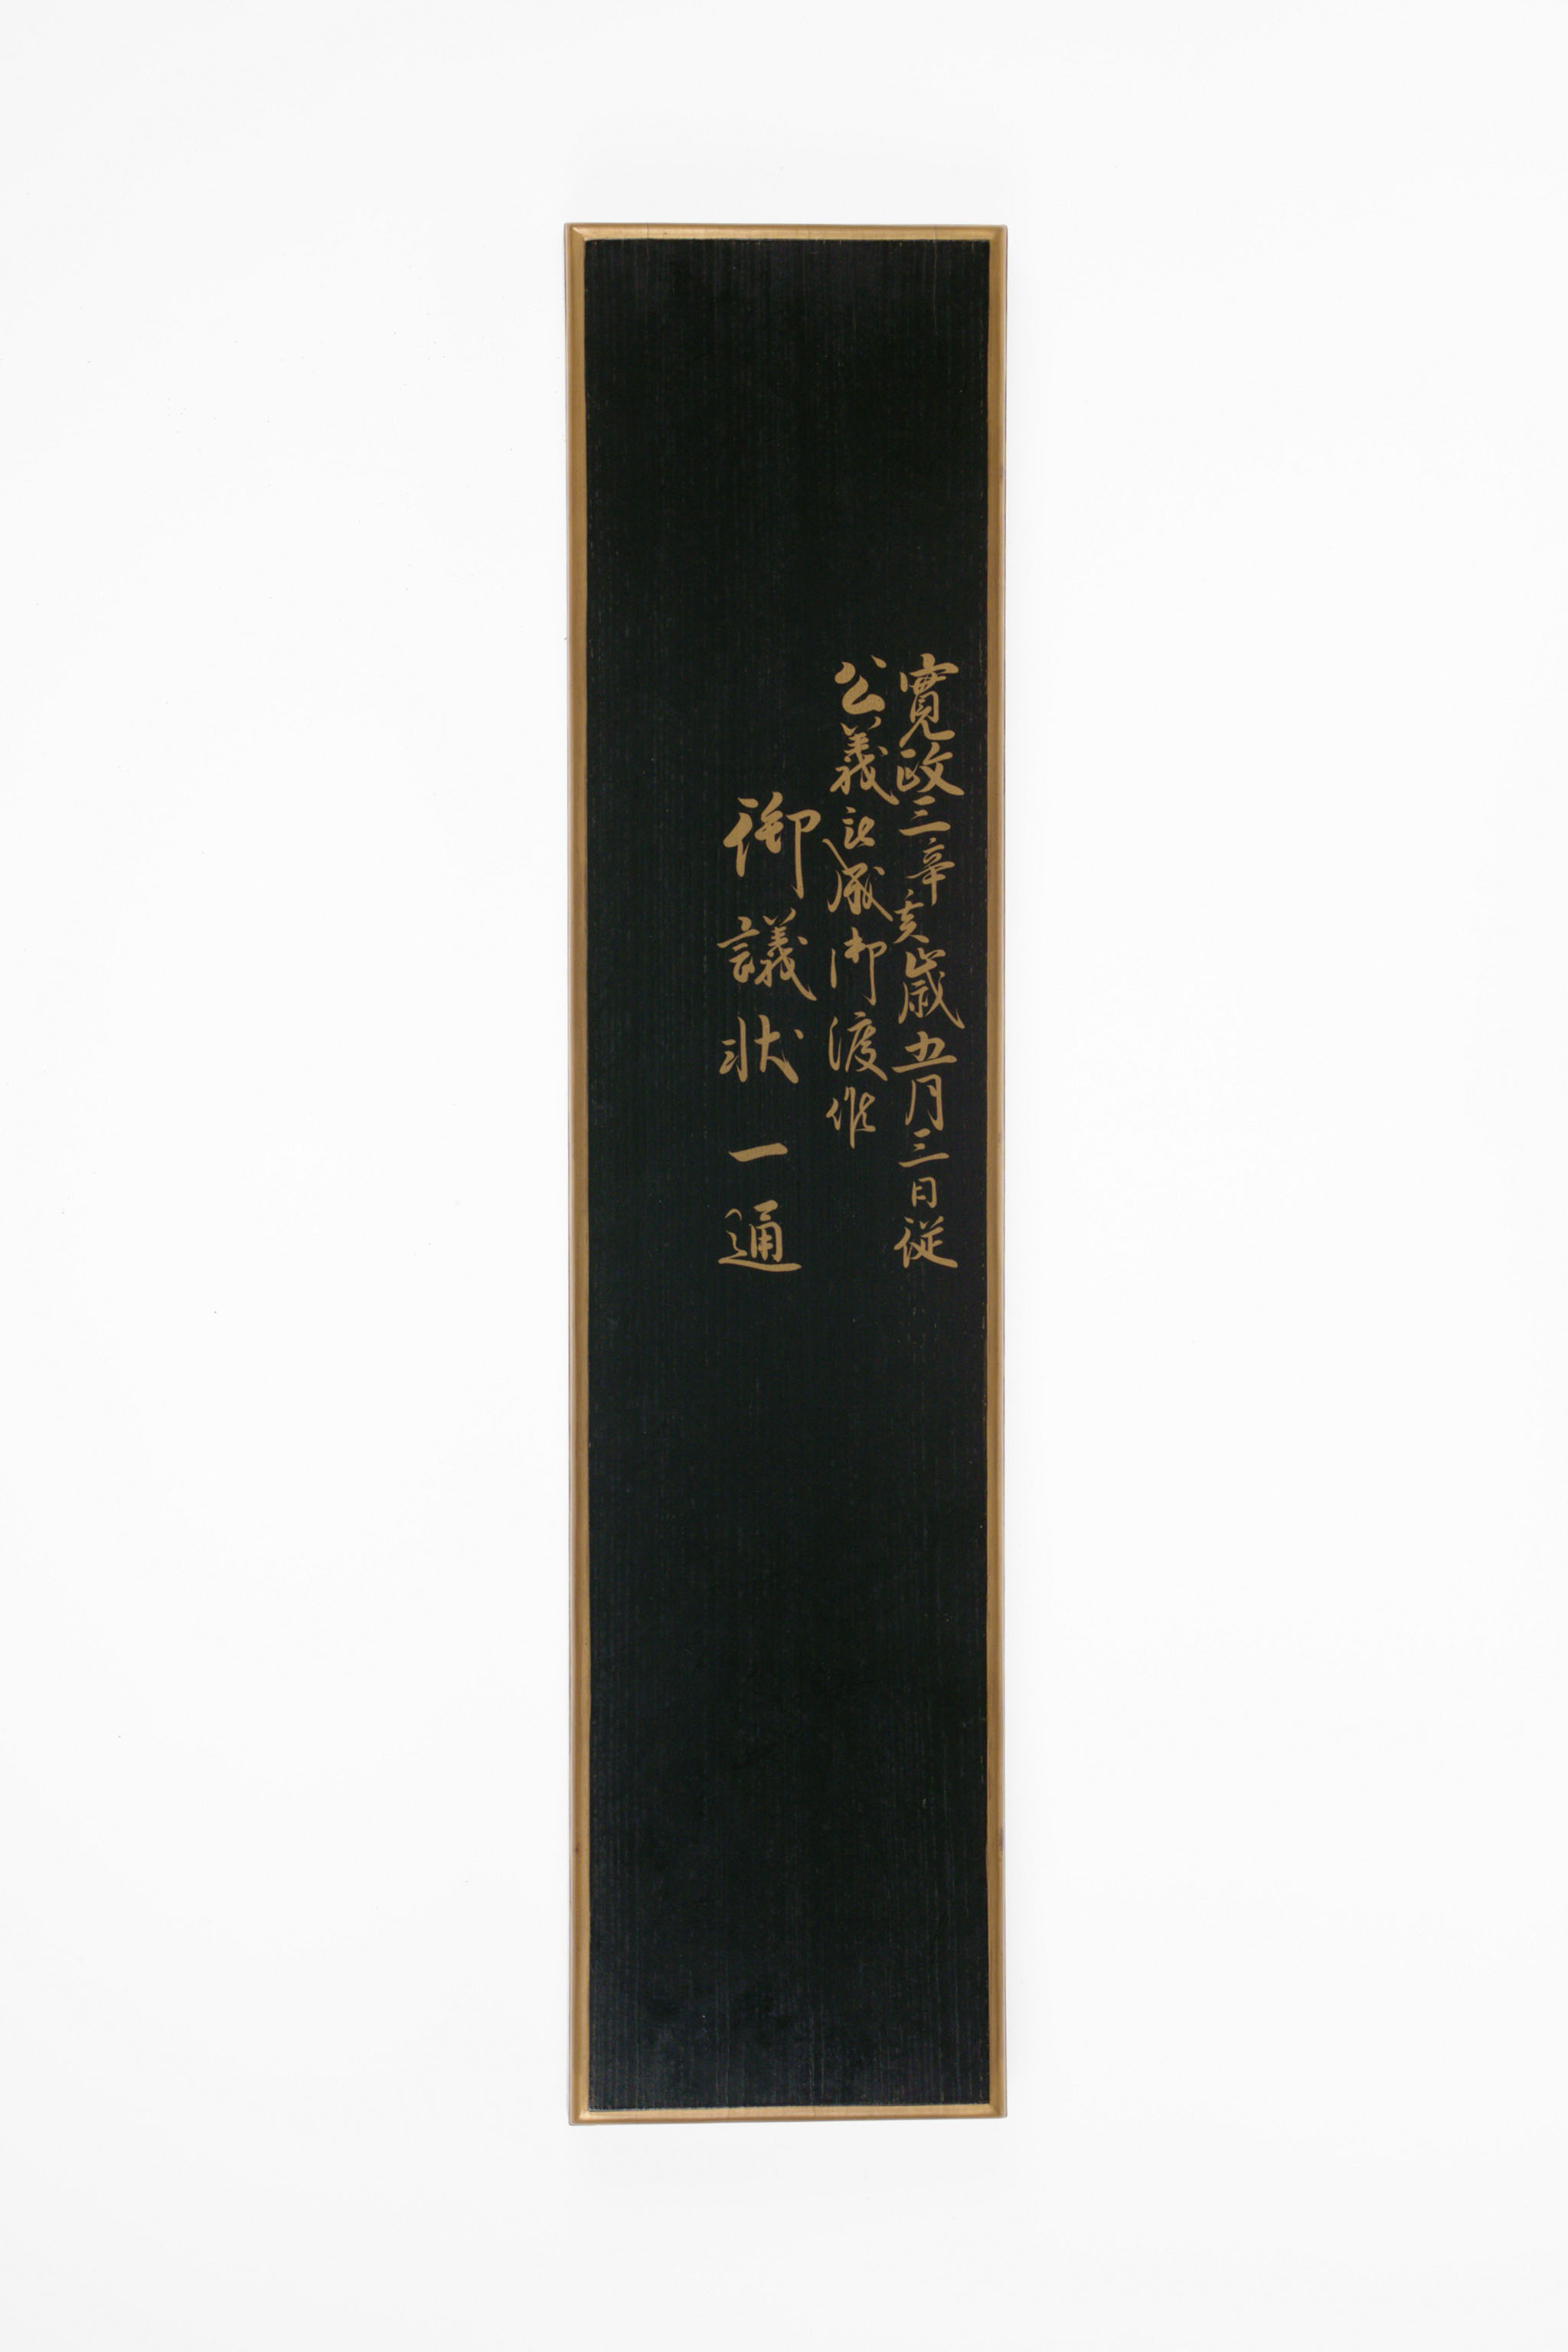 寛政三辛亥歳五月三日従
公義被成御渡候
御議状一通